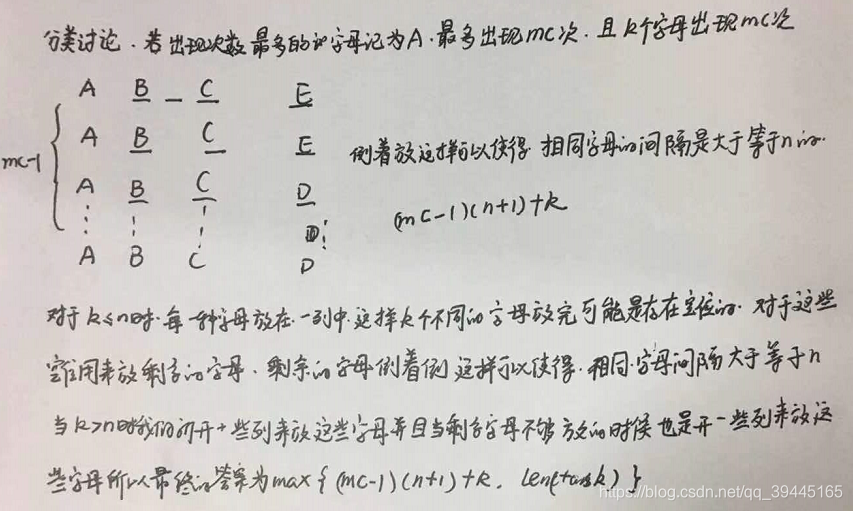 分类讨论. 若出现次数最多的的字母记为A.最多出现mc次.且k个字母出现mc次
A B _ C E
A B C E
mc-1
倒着放这样可以使得.相同字母的间隔是大于等于n的.
A B C D
(mc-1)(n+1)+k
A B C D
对于k≤n时.每一种字母放在一列中.这样k个不同的字母放完可能是存在空位的.对于这些
空位用来放剩余的字母.剩余的字母倒着倒 这样可以使得.相同.字母间隔大于等于n
当k>n时我们可开一些列来放这些字母并且当剩余字母不够放的时候也是开一些列来放这
些字母所以最终的答案为max{(mc-1)(n+1)+k, len(task)}
https://blog.csdn.net/qq_39445165